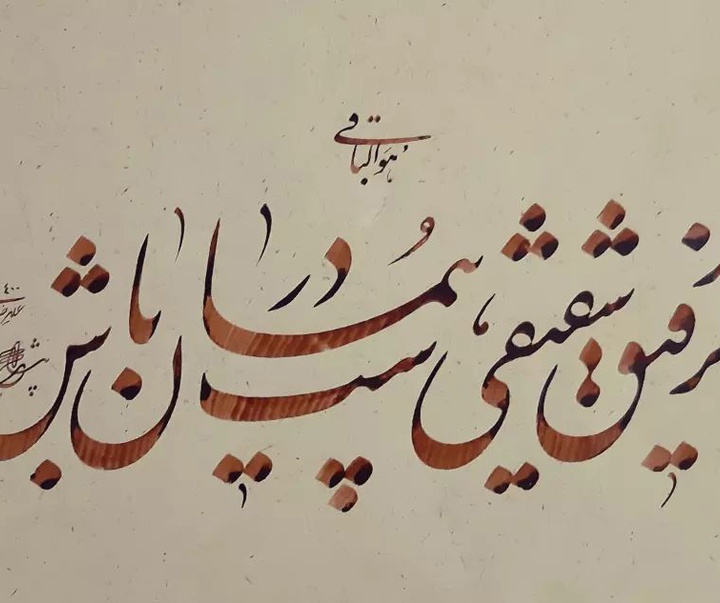 هو الباقی
رفیق شفیقی درست پیمان باش